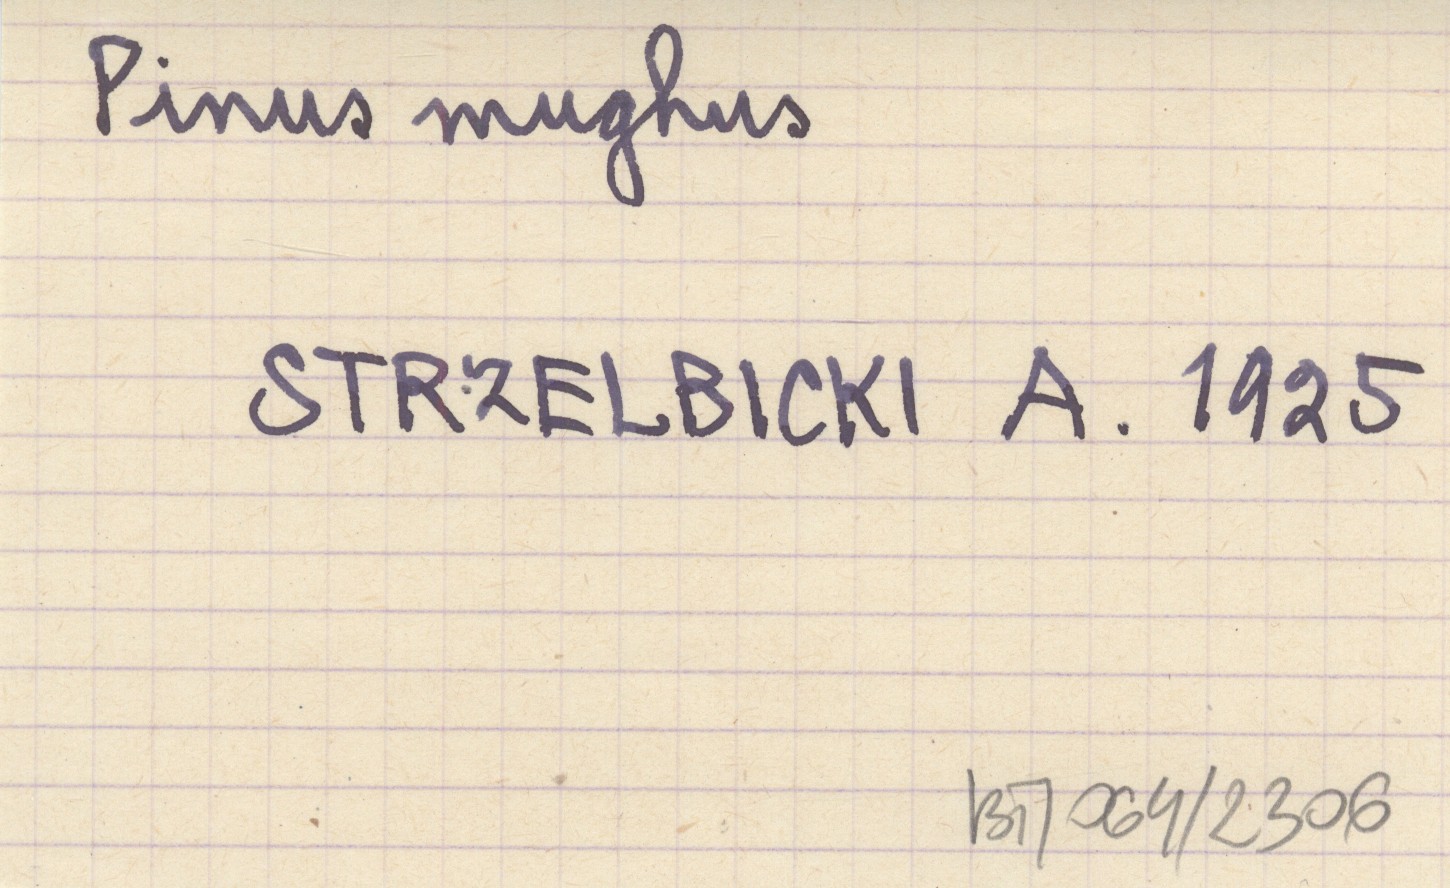 Pinus mughus
STRZELBICKI A. 1925
064/2306